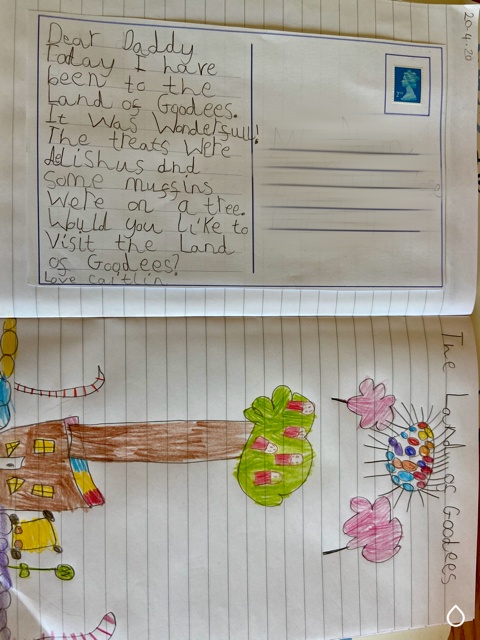 20.4.20
Dear Daddy
Today I have
been to the
Land of Goodees.
It was Wonderfull!
The treats were
dlishus and
some muffins
were on a tree.
Would you like to
visit the Land
of Goodees?
Love Caitlin
The Land of Goodees